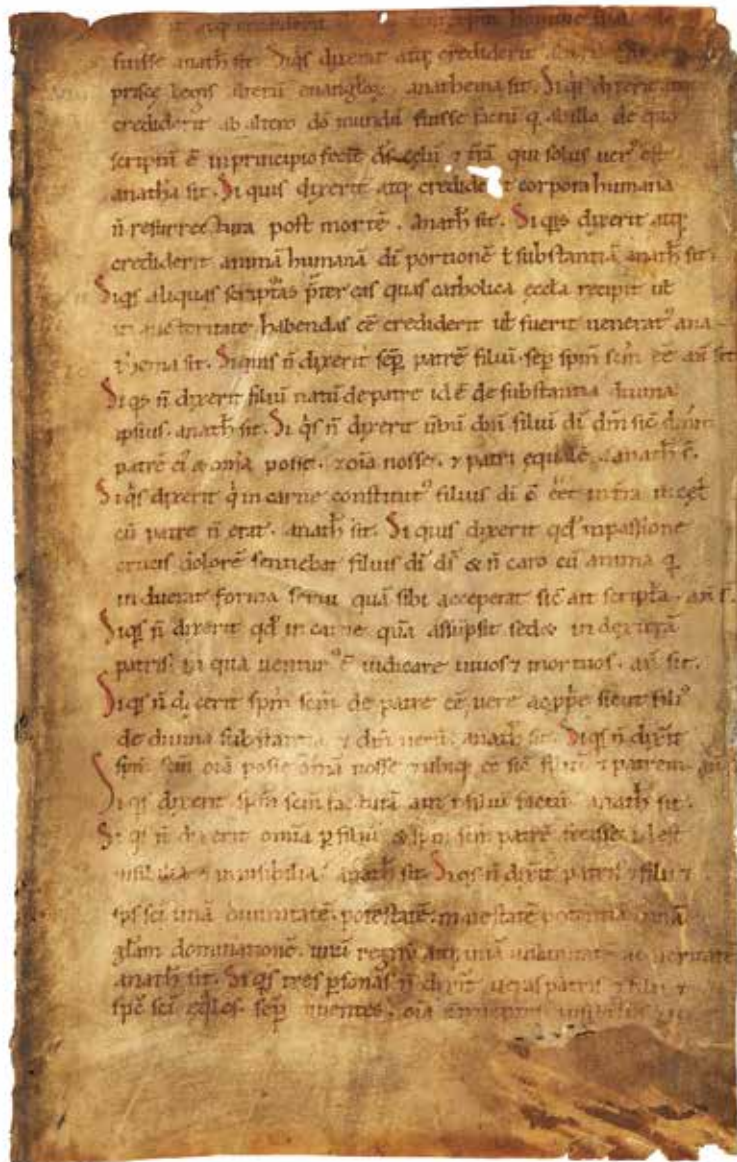 fuisse anath̄ sit. Siq̄s dixerit atq; crediderit
priscę legis alterū euanglioꝝ, anathema sit. Si q̇s dixerit atq;
crediderit ab altero dō mundū fuisse factū q̄ ab illo de quo
scriptū ē in principio fecit d̄s cęlū ⁊ trā qui solus uerꝰ est
anatha sit. Si quis dixerit atq; credide t corpora humana
ñ resurrectura post mortē. anath̄ sit. Si q̄s dixerit atq;
crediderit animā humanā di portionē ł substantiā anath̄ sit.
Siq̄s aliquas scripta̅s p̄ter eas quas catholica eccła recipit uł
in auctoritate habendas ēē crediderit uł fuerit ueneratꝰ ana-
thema sit. Siquis ñ dixerit sēp patrē filiū. sēp sp̄m sc̄m ēē añ sit
Siq̄s ñ dixerit filiū natū de patre id ē de substantia diuina
ipsius. anath̄ sit. Si q̇s ñ dixerit ūbū dn̄i filiū di dm̄ sic̄ dm̄
patrē eiꝰ & om̄a posse. ⁊ oīa nosse. ⁊ patri equalē anath̄ s̄.
Si q̇s dixerit q̇ in carne constitutꝰ filius di ē eēt in trā in cęł
cū patre ñ erat. anath̄ sit. Si quis dixerit qd̄ in passione
crucis dolorē sentiebat filius di d̄s & ñ caro cū anima q̄
induerat forma serui quā sibi acceperat sic̄ ait scripta. añ s̄.
Siq̄s ñ dixerit qd̄ in carne quā assūpsit sed& in dexterā
patris. in qua uenturꝰ ē iudicare uiuos ⁊ mortuos. añ sit.
Siq̄s ñ dixerit sp̄m sc̄m de patre ēē uere ac p̄pe sicut filiꝰ
de diuina substantia ⁊ dm̄ uerū. anath̄ sit. Siq̄s ñ dix̄it
sp̄m sc̄m oīa posse om̄ā nosse ⁊ ubiq; ēē sic̄ filiū ⁊ patrem
Siq̄s dixerit sp̄m sc̄m facturā aut filiū factū anath̄ sit.
Si q̄s ñ dixerit omia p filiū & sp̄m sc̄m patrē fecisse id est
uisibilia ⁊ inuisibilia anath̄ sit. Siq̄s ñ dix̄it patris ⁊ filii ⁊
sp̄s sc̄i unā diuinitatē. potestatē. maiestatē potentiā unā
głam dominationē. unū regnū atq; unā uoluntatē ac ueritatē
anath̄ sit. Si q̄s tres psonas ñ dix̄it ueras patris ⁊ filii ⁊
sp̄c sc̄i eq̄les. sēp uiuentes. oīa